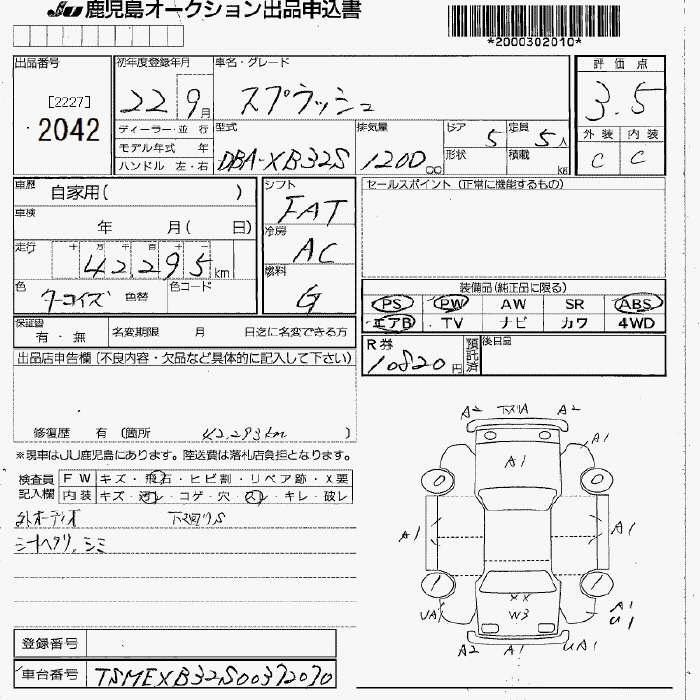 JU 鹿児島オークション出品申込書
*2000302010*
出品番号 初年度登録年月 車名・グレード 評価点
[2227] 22 9月 スプラッシュ 3.5
2042
ディーラー・並行 型式 排気量 ドア 5 定員 5人 外装 内装
モデル年式 年 DBA-XB32S 1200 cc 形状 積載 kg C C
ハンドル 左・右
車歴 自家用( ) シフト FAT セールスポイント (正常に機能するもの)
車検 年 月( 日) 冷房 AC
走行 十 万 千 百 十 一
42295km 燃料 G
色 ターコイズ 色替 色コード
装備品(純正品に限る)
PS PW AW SR ABS
エアB TV ナビ カワ 4WD
保証書 有・無 名変期限 月 日迄に名変できる方
R券 10820円 預託済 後日品
出品店申告欄(不良内容・欠品など具体的に記入して下さい)
修復歴 有 (箇所 42,293km )
※現車はJU鹿児島にあります。陸送費は落札店負担となります。
検査員記入欄 FW キズ・飛石・ヒビ割・リペア跡・X要
内装 キズ・汚レ・コゲ・穴・スレ・キレ・破レ
外オーディオ
シートヘタリ、シミ
A2 下スリA A2
A1
A1
0 0
A1 A1
1 1
XX
UA1 W3 A1
U1
A2 A1 UA1
登録番号
車台番号 TSMEXB32S00372070